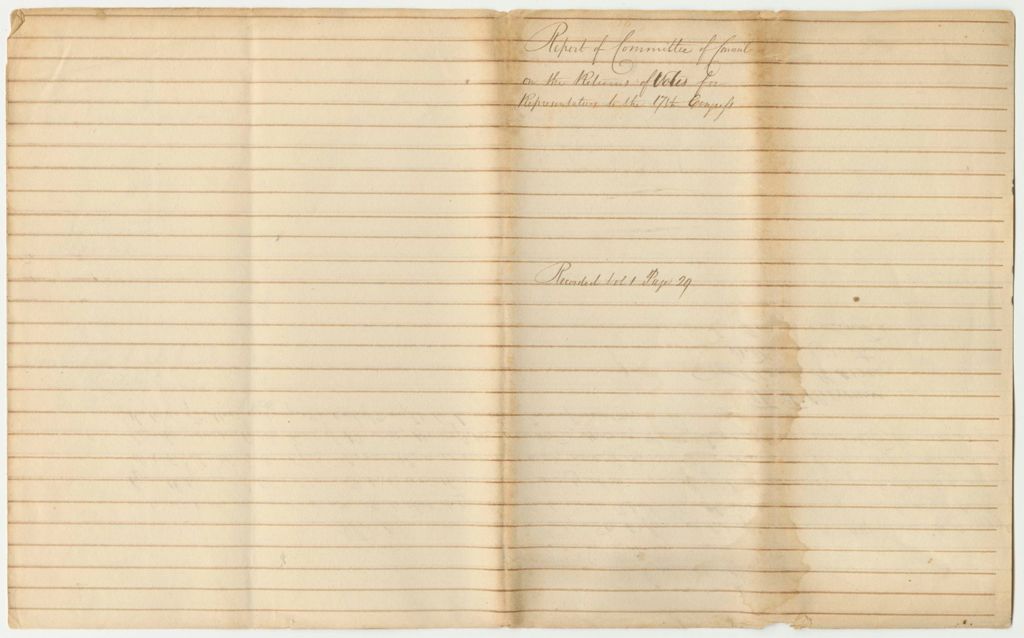 Report of Committee of Council
on the Returns of Votes for
Representatives to the 17th Congress
Recorded Vol 1 Page 29